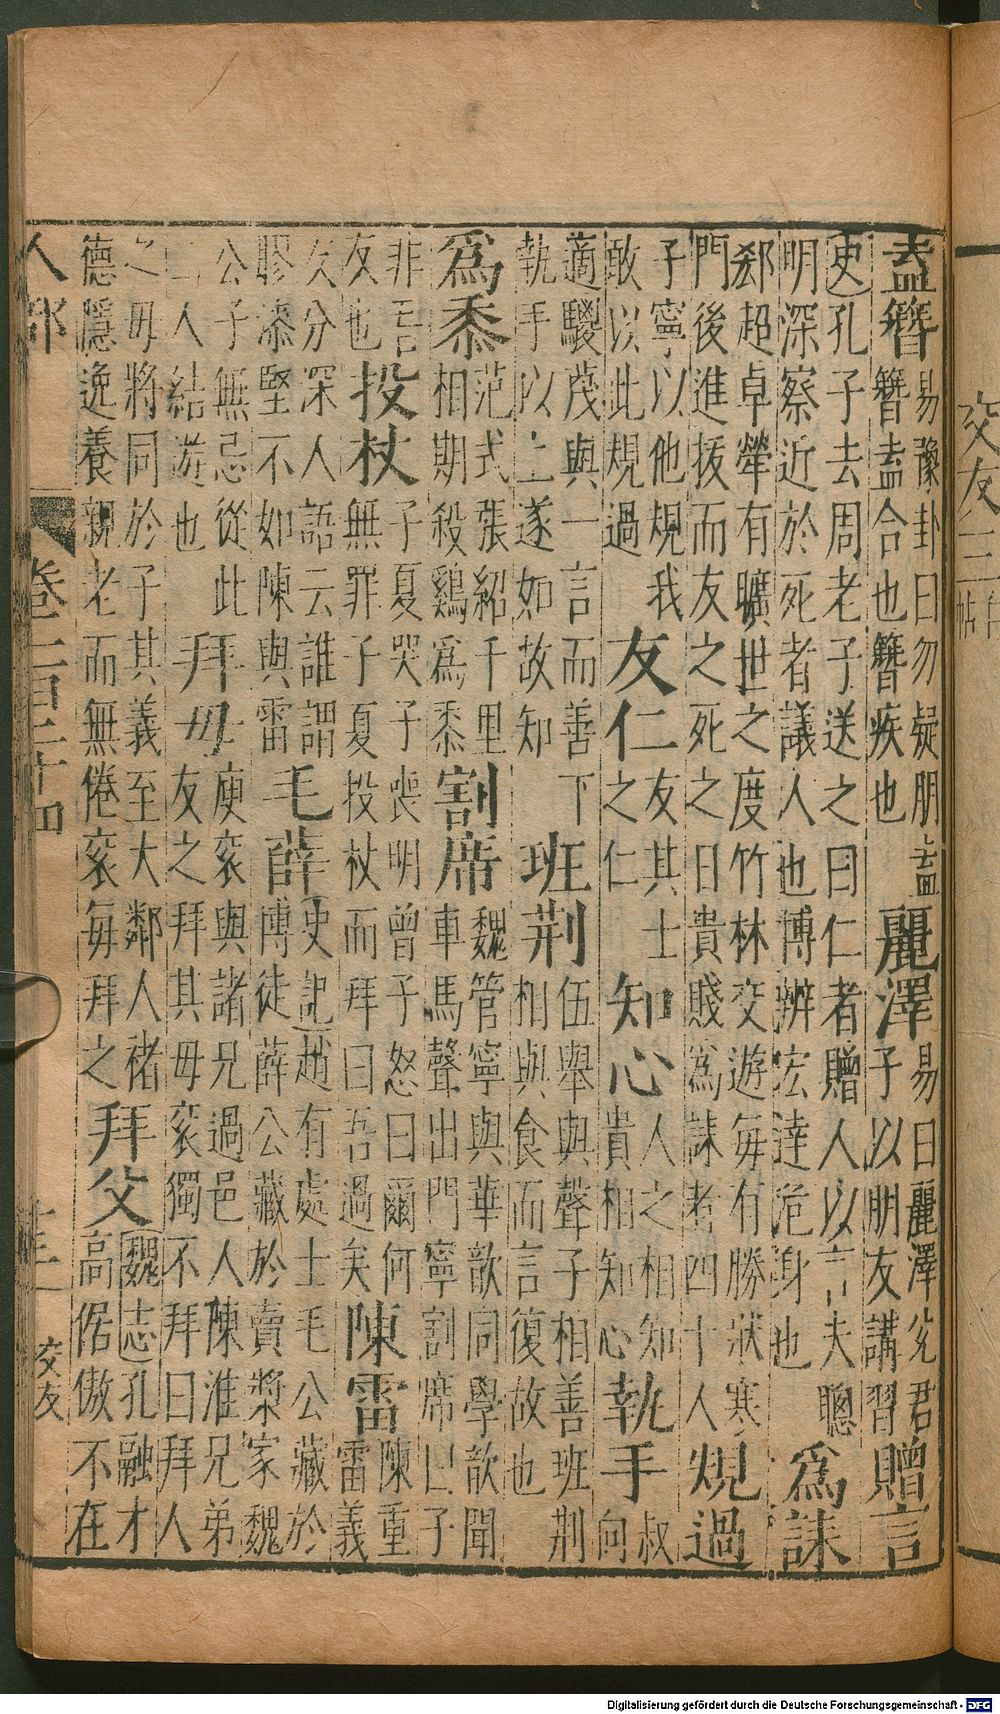 交友三
盍簪
易豫卦曰勿疑朋盍
簪盍合也簪疾也
麗澤
易曰麗澤兌君
子以朋友講習
贈言
史孔子去周老子送之曰仁者贈人以言夫聰
明深察近於死者議人也博辨宏達危身也
爲誄
郄超卓犖有曠世之度竹林交遊每有勝狀寒
門後進拔而友之死之日貴賤爲誄者四十人
規過
子寧以他規我
敢以此規過
友仁
友其士
之仁
知心
人之相知
貴相知心
執手
叔
向
適鬷茂與一言而善下
執手以上遂如故知
班荆
伍舉與聲子相善班荆
相與食而言復故也
爲黍
范式張紹千里
相期殺鷄爲黍
割席
魏管寧與華歆同學歆聞
車馬聲出門寧割席曰子
非吾
友也
投杖
子夏哭子喪明曾子怒曰爾何
無罪子夏投杖而拜曰吾過矣
陳雷
陳重
雷義
友分深人語云誰謂
膠漆堅不如陳與雷
毛薛
史記趙有處士毛公藏於
博徒薛公藏於賣漿家魏
公子無忌從此
二人結遊也
拜母
庾袞與諸兄過邑人陳淮兄弟
友之拜其母袞獨不拜曰拜人
之母將同於子其義至大鄰人褚
德隱逸養親老而無倦袞每拜之
拜父
魏志孔融才
高倨傲不在
人部
卷二百
十四
交友
Digitalisierung gefördert durch die Deutsche Forschungsgemeinschaft - DFG